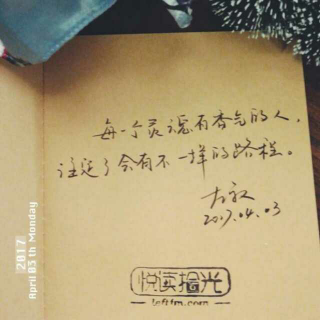 每一个灵魂有香气的人，
注定了会有不一样的路程。
2017.04.03
悦读拾光
leftfm.com
2017
April 03 th Monday